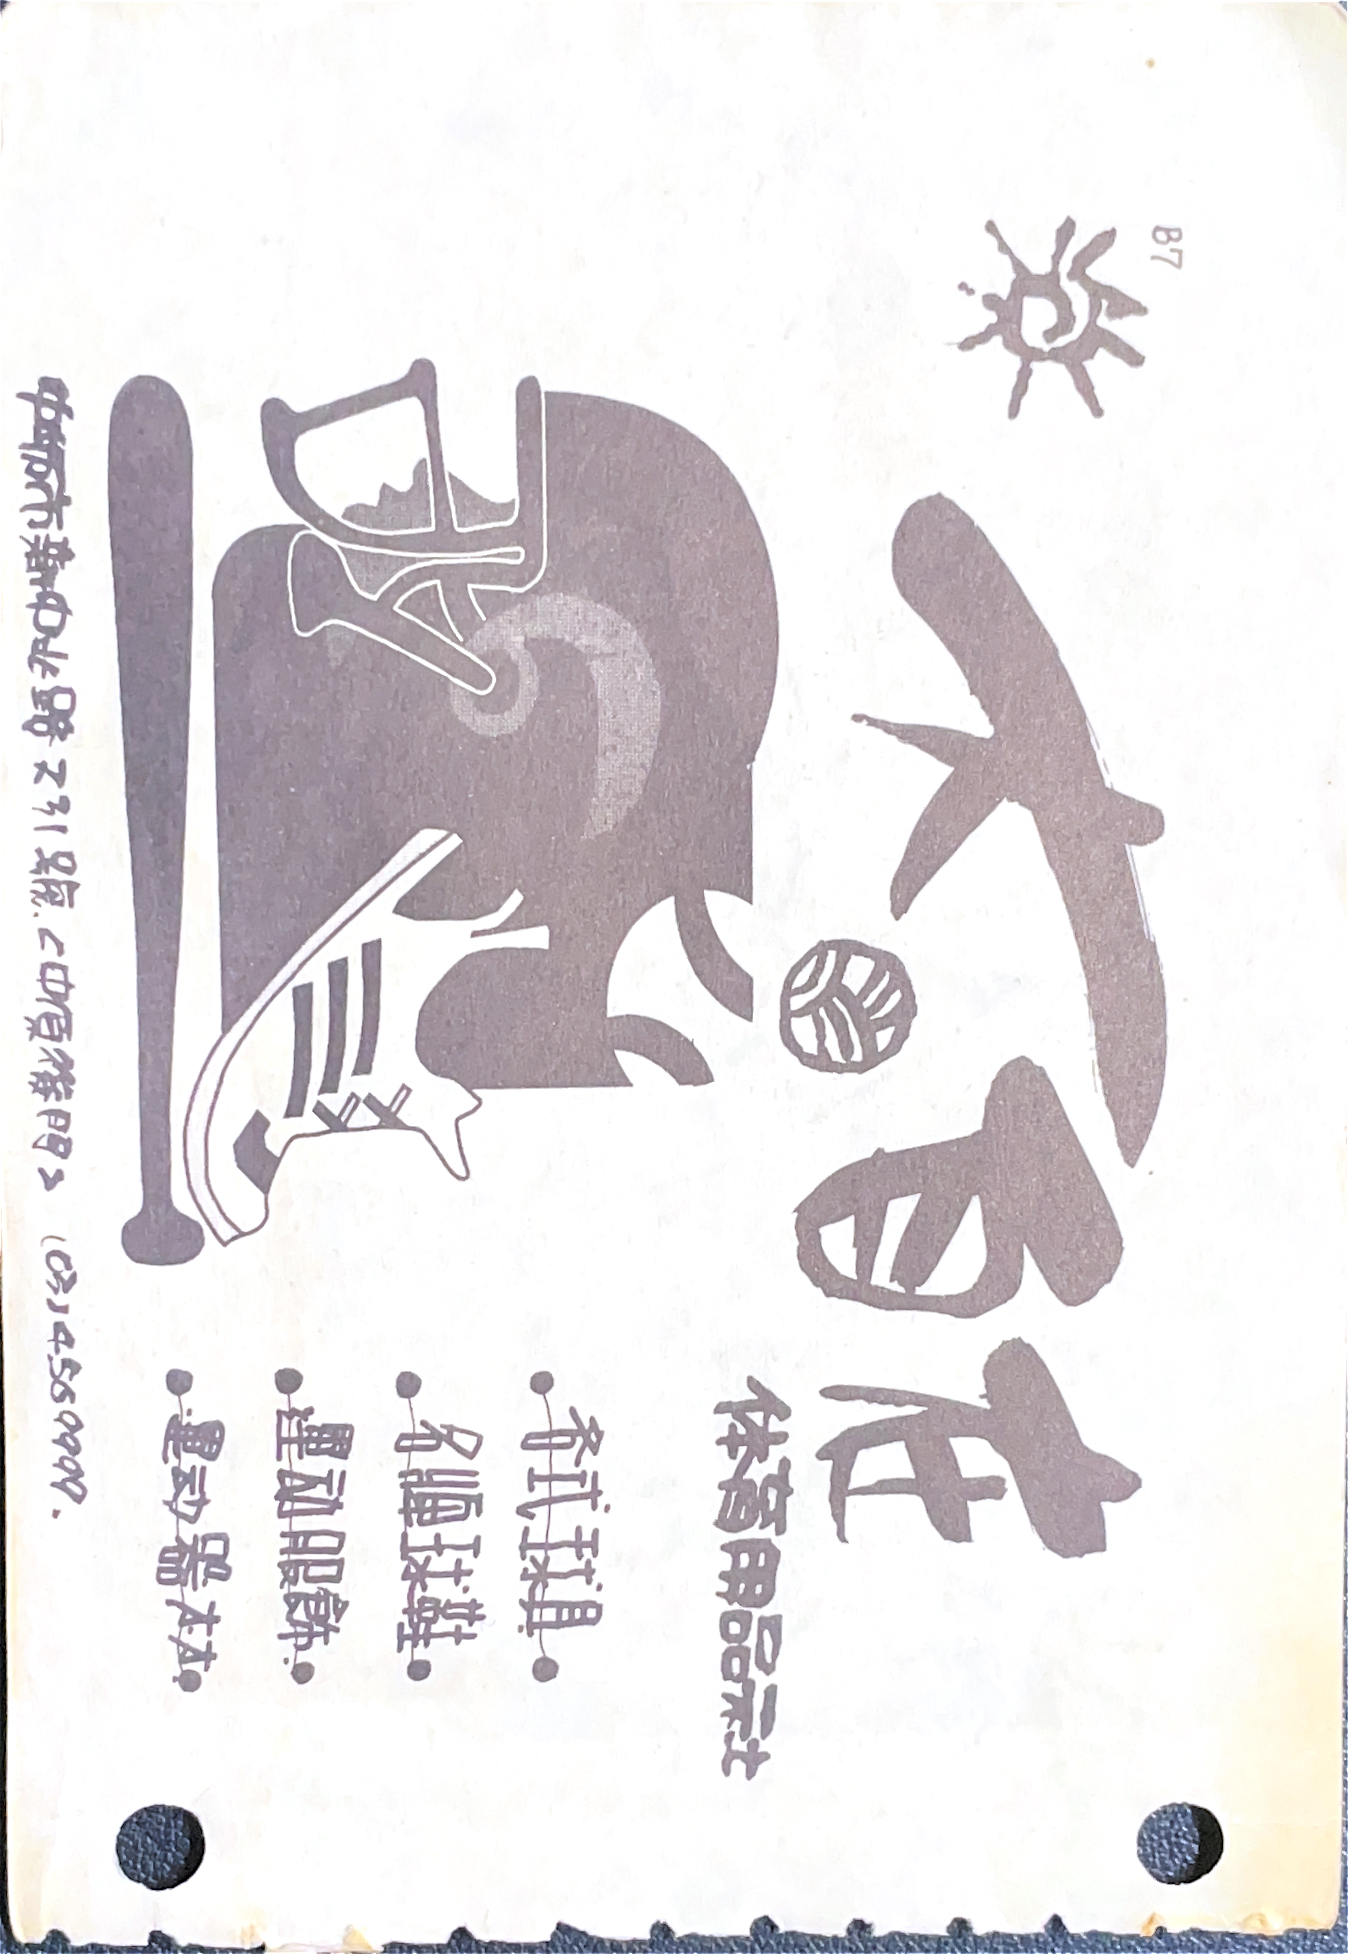 B7
大自在
体育用品社
各式球具
名牌球鞋
運动服飾
運动器材
中坜市新中北路231號.<中原後門> (03)4569999.